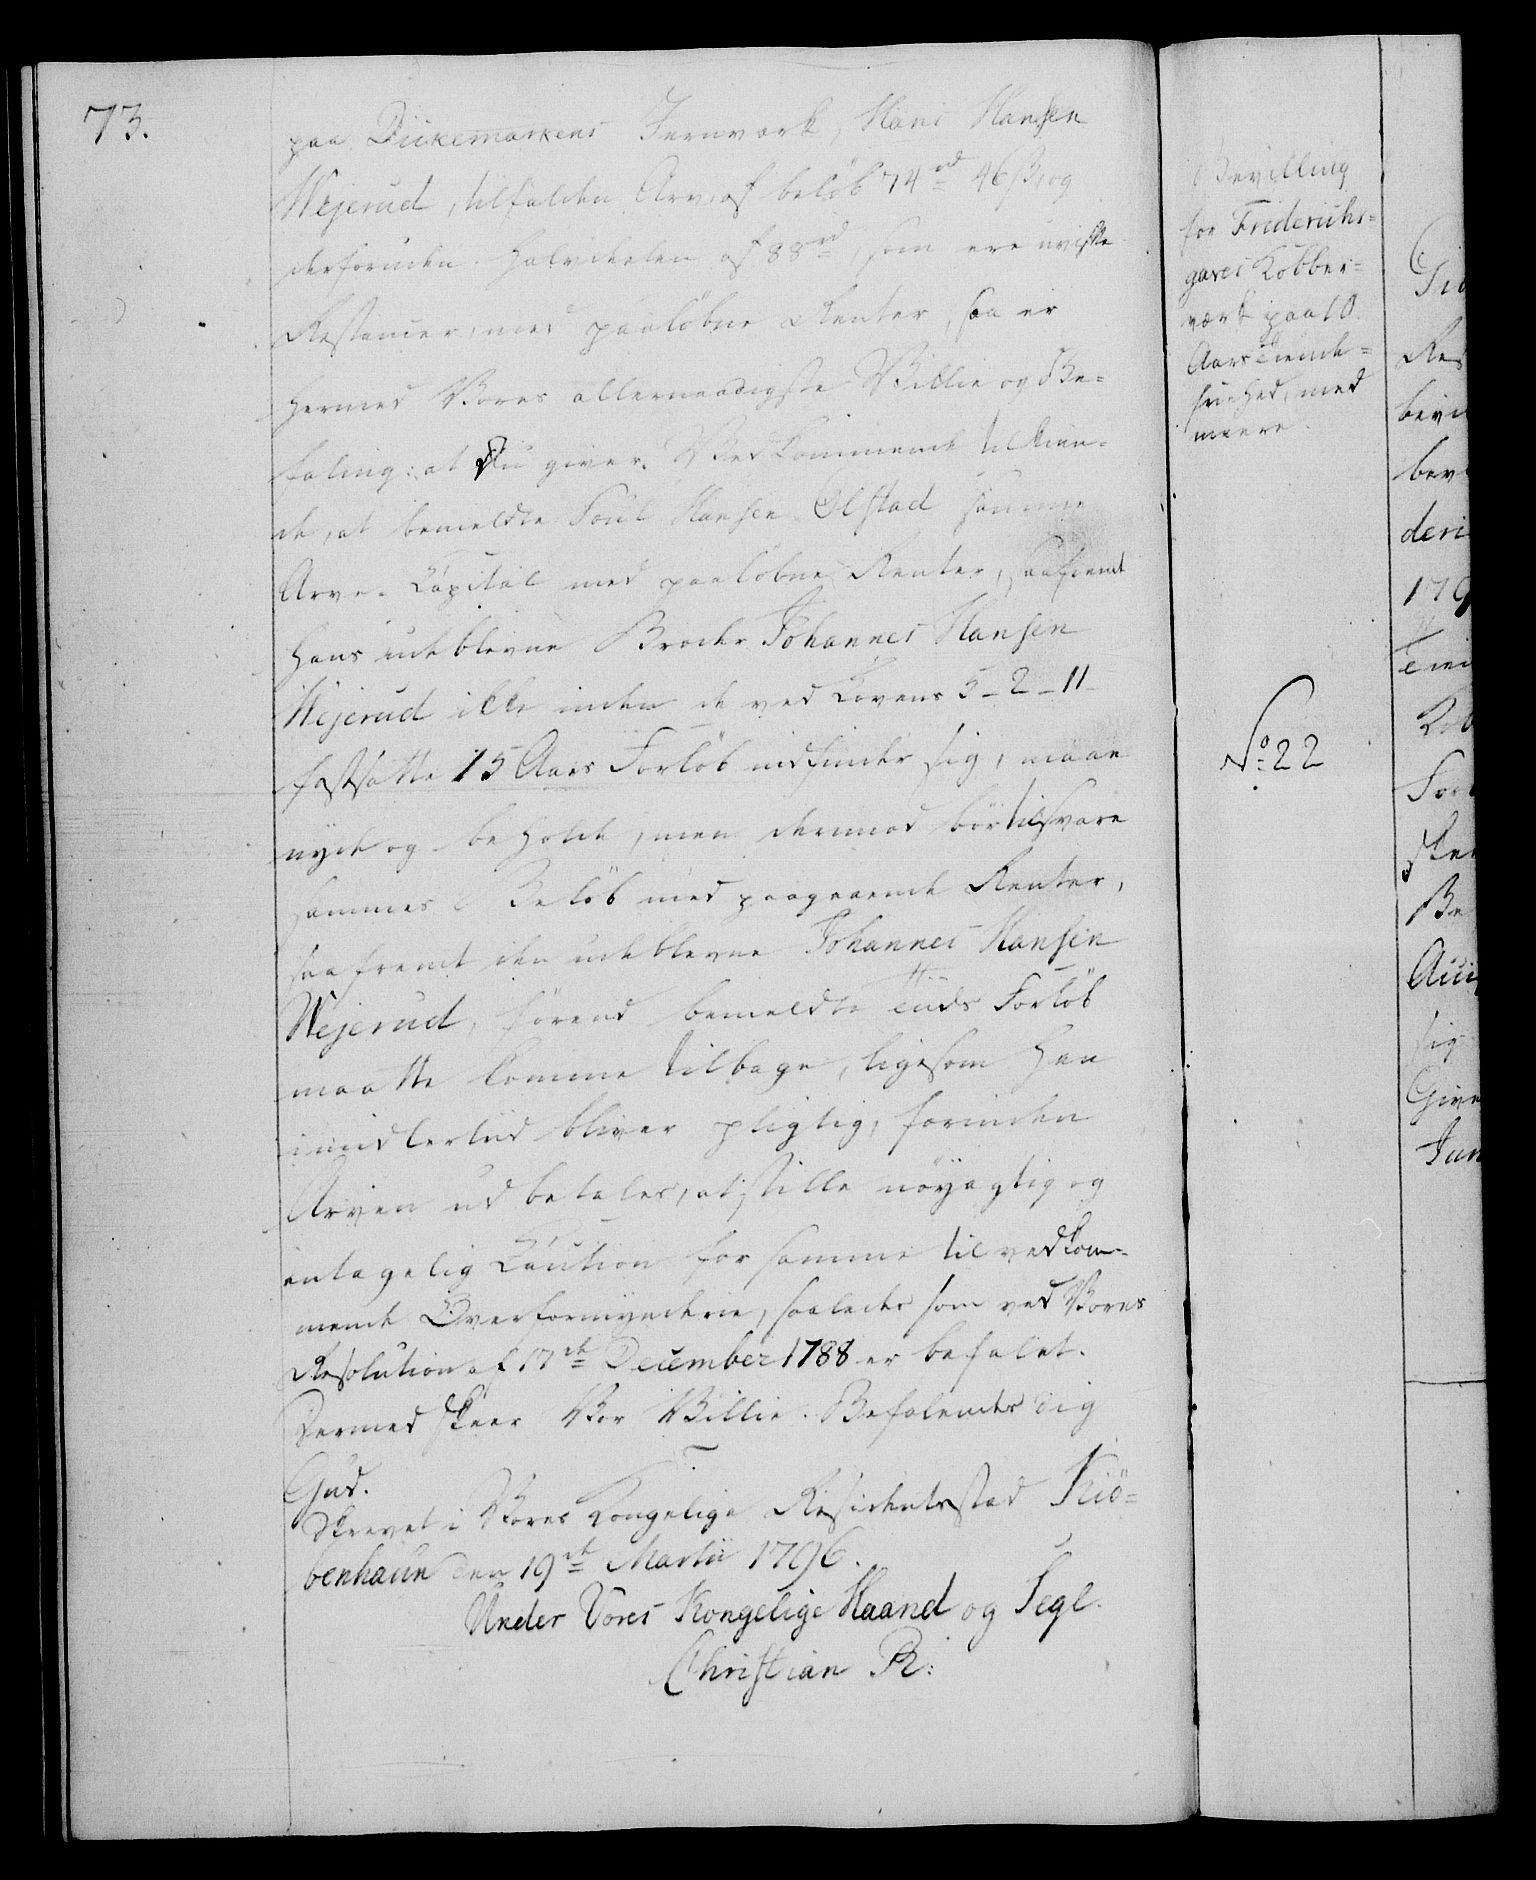 73.
paa Dikemarkens Jernværk, Hans Hansen
Wejerud, tilfalden Arv, af beløb 74 rd 46 ß, og
desforuden Halvdelen af 88 rd, som ere uvisse
Restancer, med paaløbne Renter, saa er
hermed Vores allernaadigste Villie og Be-
faling: at Du giver Vedkommende tilkien-
de, at bemeldte Poul Hansen Ølstad samme
Arve-Capital med paaløbne Renter, saafremt
hans udeblevne Broder Johannes Hansen
Wejerud ikke inden de ved Lovens 5-2-11
fastsatte 15 Aars Forløb indfinder sig, maae
nyde og beholde, men derimod bør tilsvare
sammes Beløb med paagaaende Renter,
saafremt den udeblevne Johannes Hansen
Wejerud, førend bemeldte Tiids Forløb
maatte komme tilbage, ligesom han
imidlertid bliver pligtig, forinden
Arven udbetales, at stille nøyagtig og
antagelig Caution for samme til vedkom-
mende Overformynderie, saaledes som ved Vores
Resolution af 17de December 1788 er befalet.
Dermed skeer Vor Villie. Befalendes Dig
Gud.
Skrevet i Vores Kongelige Residentsstad Kiø-
benhaün den 19de Martii 1796.
Under Vores Kongelige Haand og Segl.
Christian R:
Bevilling
for Friderichs-
gaves Kobber-
værk paa 10
Aars Tiende-
friehed, med
meere.
No. 22
bevi
bev
deri
179
Giv
Jun